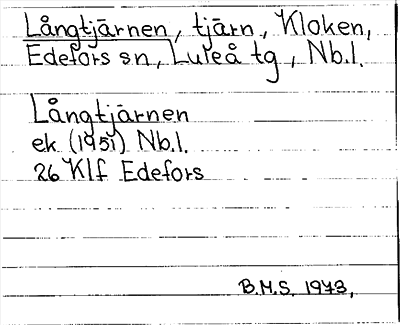 Långtjärnen, tjärn, Kloken,
Edefors sn, Luleå tg, Nb.l.
Långtjärnen
ek (1951) Nb.l.
26 Klf Edefors
B.M.S. 1973,